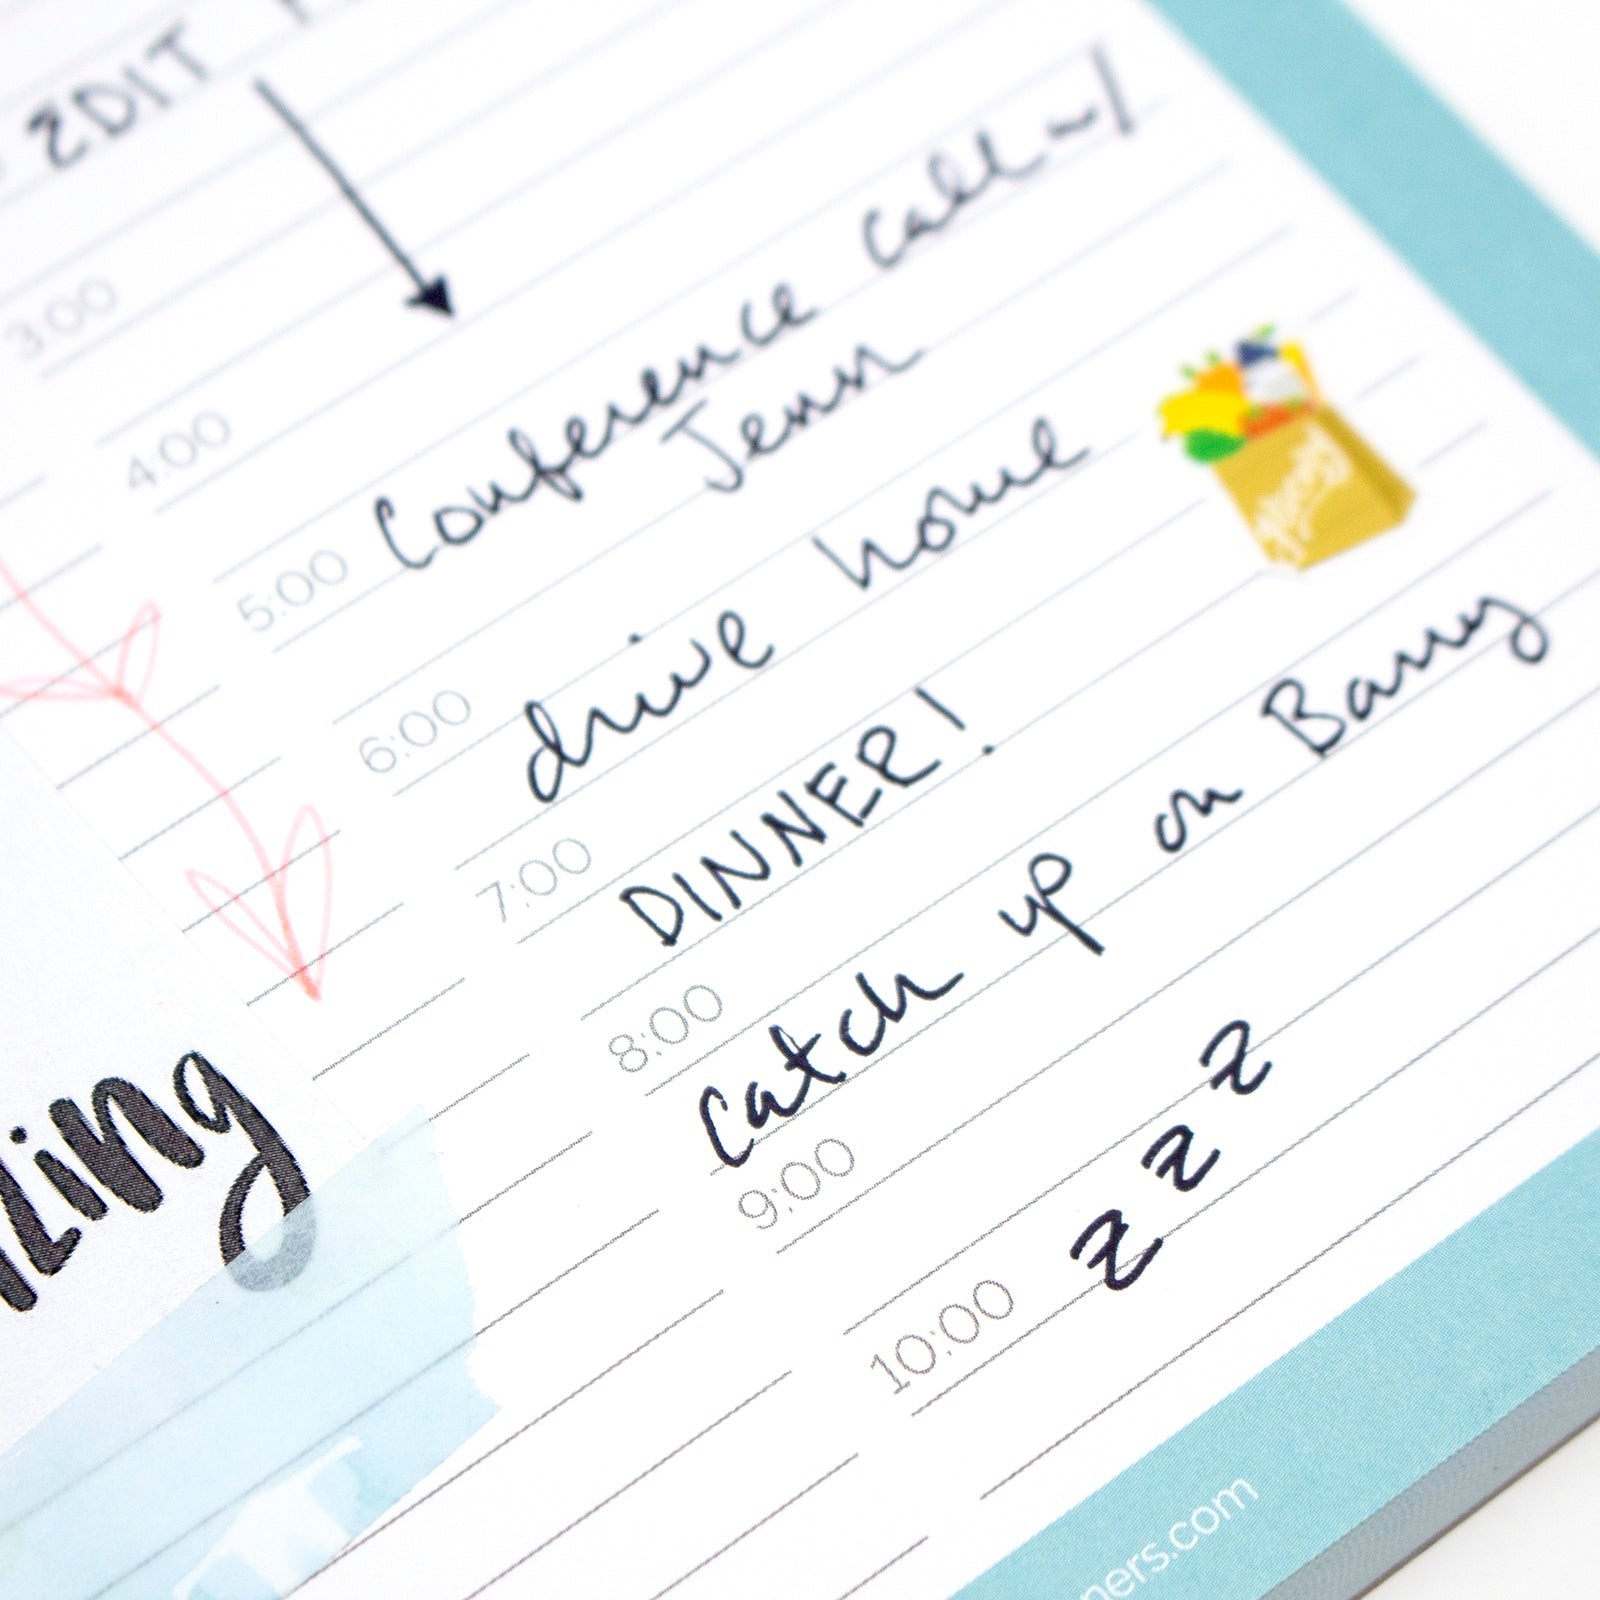 EDIT
3:00
4:00
5:00 Conference Call w/
Jenn
6:00 drive home
7:00 DINNER!
8:00 Catch up on Barry
9:00
10:00 z z z